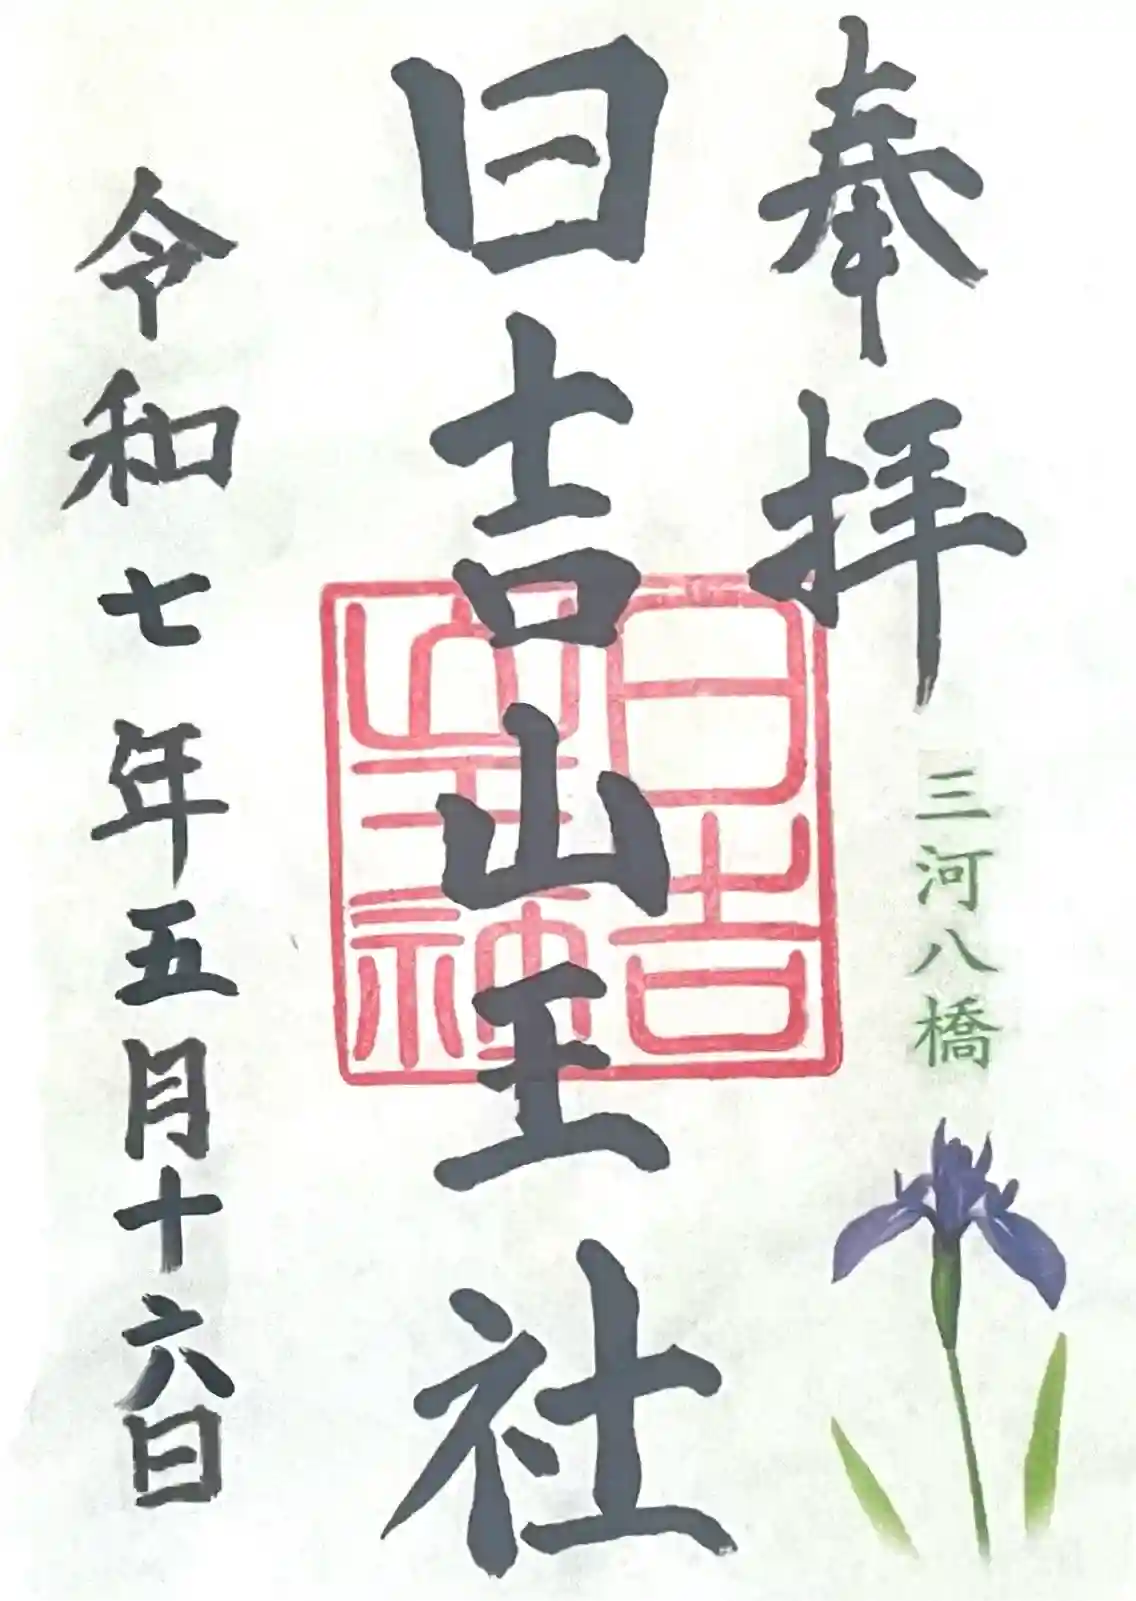 奉拝
三河八橋
日吉山王社
日吉
山王神
令和七年五月十六日